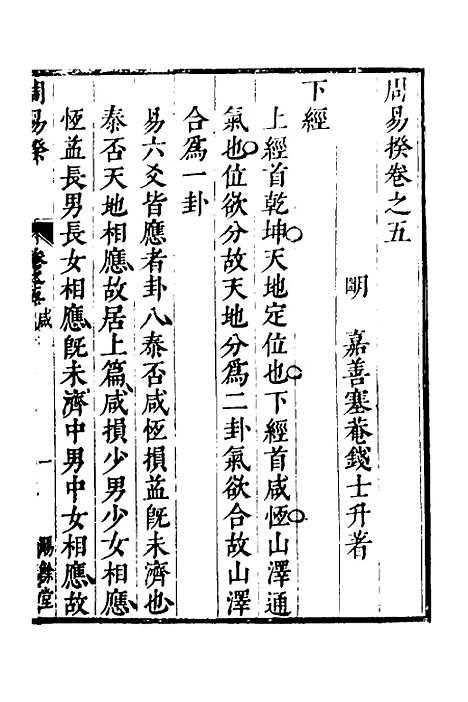 周易揆卷之五
明 嘉善塞菴錢士升著
下經
上經首乾坤天地定位也下經首咸恆山澤通
氣也位欲分故天地分爲二卦氣欲合故山澤
合爲一卦
易六爻皆應者卦八泰否咸恆損益旣未濟也
泰否天地相應故居上篇咸損少男少女相應
恆益長男長女相應旣未濟中男中女相應故
周易揆 卷之五 咸 一 賜餘堂